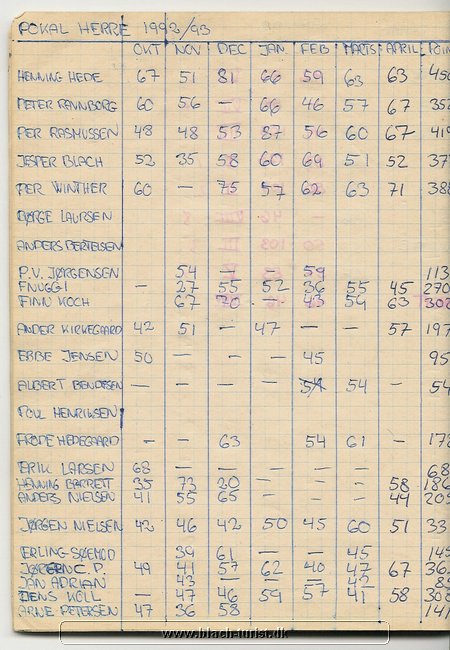 POKAL HERRE 1992/93
OKT NOV DEC JAN FEB MARTS APRIL POIN
HENNING HEDE 67 51 81 66 59 63 63 450
PETER RANNBORG 60 56 — 66 46 57 67 352
PER RASMUSSEN 48 48 53 87 56 60 67 419
JESPER BLACH 52 35 58 60 69 51 52 37
PER WINTHER 60 — 75 57 62 63 71 388
BØRGE LAURSEN
ANDERS BERTELSEN
P.V. JØRGENSEN 54 — — 59 113
FNUGGI — 27 55 52 36 55 45 270
FINN KOCH 67 70 — 43 59 63 302
ANDER KIRKEGAARD 42 51 — 47 — — 57 197
EBBE JENSEN 50 — — — 45 95
ALBERT BENDTSEN — — — — 54 — 54
POUL HENRIKSEN
FRODE HEDEGAARD — — 63 54 61 — 178
ERIK LARSEN 68 — — — — — 68
HENNING BARRETT 35 73 20 — — — 58 186
ANDERS NIELSEN 41 55 65 — — — 44 205
JØRGEN NIELSEN 42 46 42 50 45 60 51 33
ERLING 39 61 — — 45 145
JØRGEN C.P. 49 41 57 62 40 47 67 36
JAN ADRIAN 43 — — — 42 — 85
JENS KOLL — 47 46 59 57 41 58 308
ARNE PETERSEN 47 36 58 141
www.blach-turist.dk